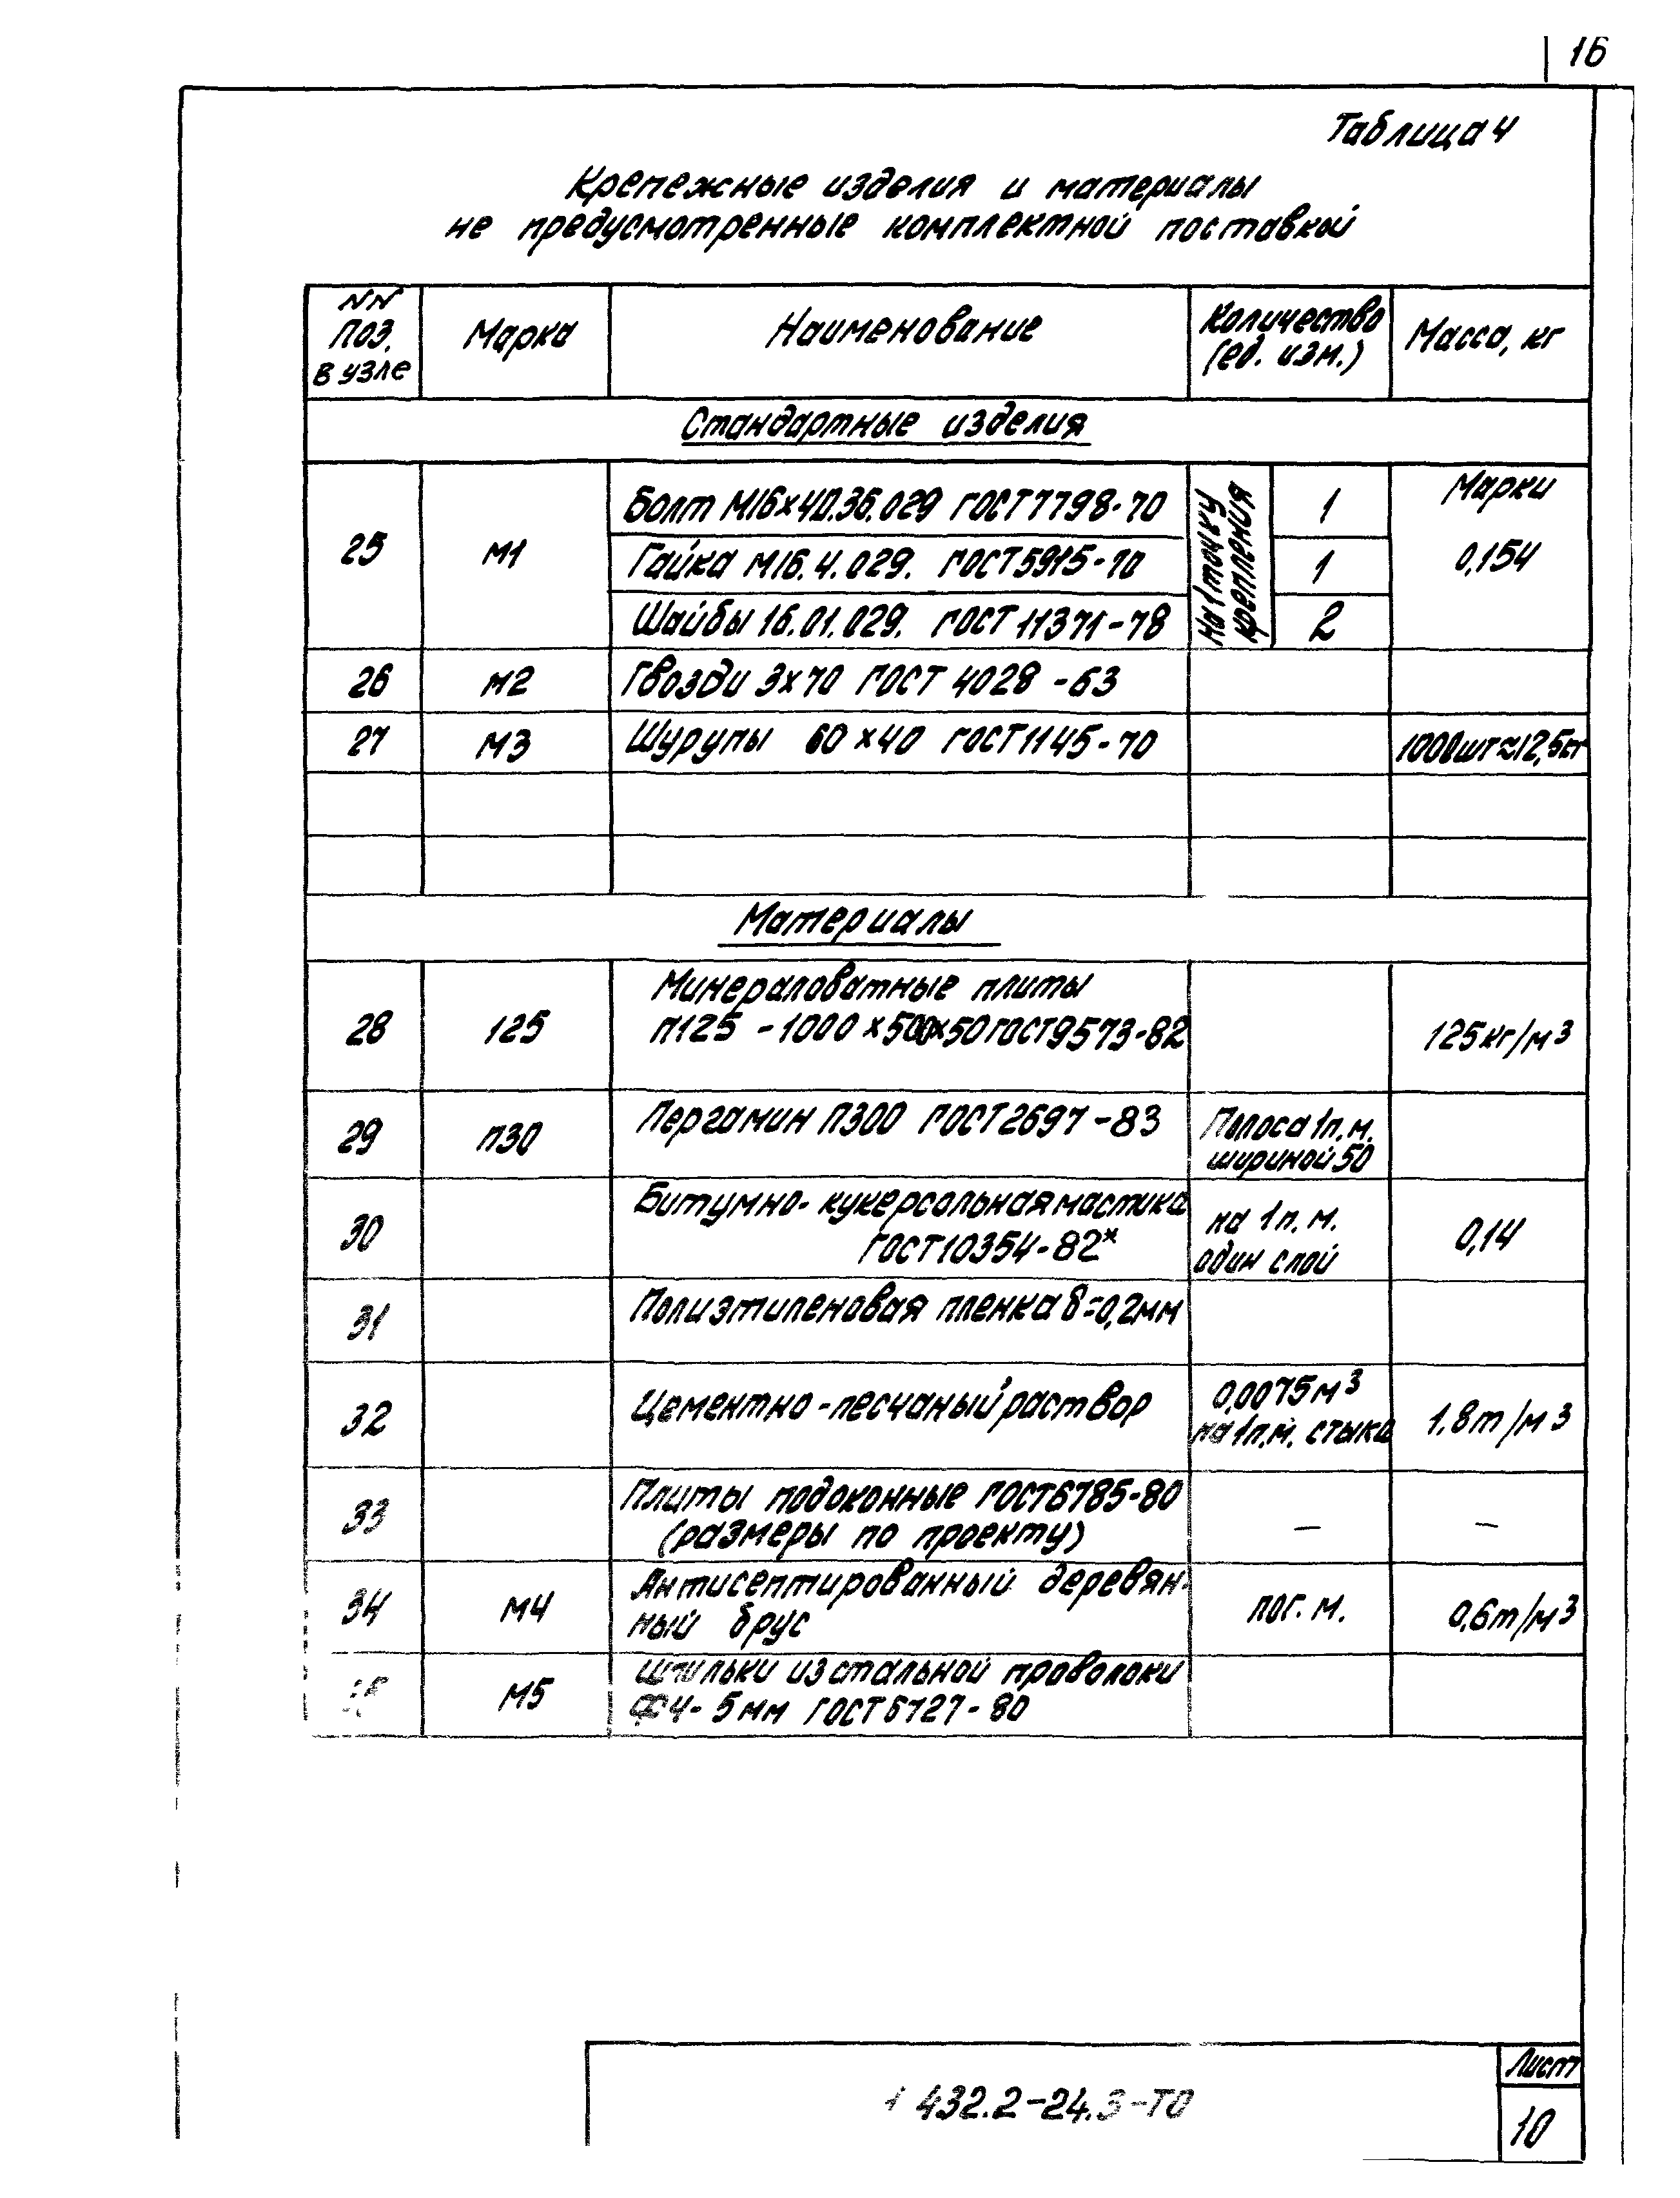 16
Таблица 4
Крепежные изделия и материалы
не предусмотренные комплектной поставкой
NN поз. в узле
Марка
Наименование
Количество (ед. изм.)
Масса, кг
Стандартные изделия
25
М1
Болт М16х40.36.029 ГОСТ 7798-70
На 1 точку крепления
1
Марки
0,154
Гайка М16.4.029. ГОСТ 5915-70
1
Шайбы 16.01.029. ГОСТ 11371-78
2
26
М2
Гвозди 3х70 ГОСТ 4028-63
27
М3
Шурупы 60х40 ГОСТ 1145-70
1000шт≈12,5кг
Материалы
28
125
Минераловатные плиты
П125 -1000х500х50 ГОСТ 9573-82
125кг/м³
29
П30
Пергамин П300 ГОСТ 2697-83
Полоса 1п.м.
шириной 50
30
Битумно-кукерсольная мастика
ГОСТ 10354-82*
на 1п.м.
один слой
0,14
31
Полиэтиленовая пленка δ=0,2мм
32
Цементно-песчаный раствор
0,0075м³
на 1п.м. стыка
1.8т/м³
33
Плиты подоконные ГОСТ 6785-80
(размеры по проекту)
—
—
34
М4
Антисептированный деревян-
ный брус
пог. м.
0,6т/м³
М5
Шпильки из стальной проволоки
Ф4-5мм ГОСТ 6727-80
1 432.2-24.3-ТО
Лист
10